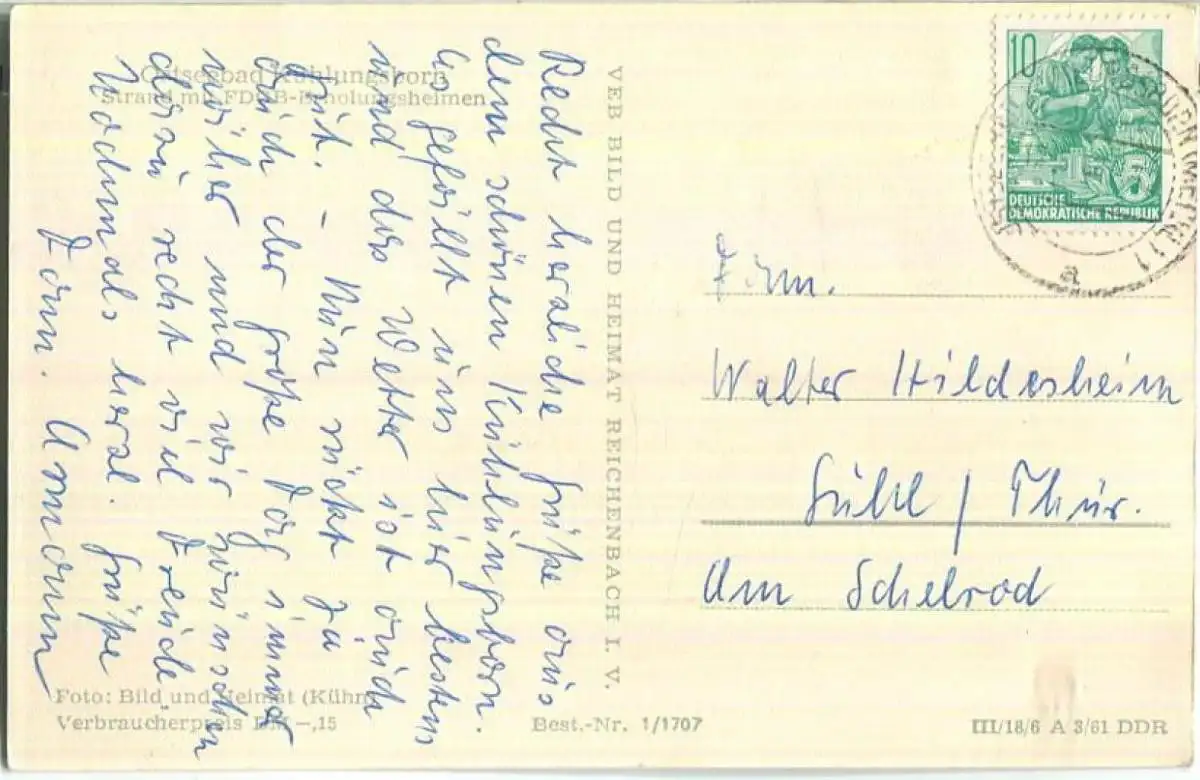 Ostseebad Kühlungsborn
Strand mit FDGB-Erholungsheimen
Recht herzliche Grüße aus
dem schönen Kühlungsborn.
Es gefällt uns hier bestens
und das Wetter ist auch
gut. – Nun rückt ja
auch der große Tag immer
näher und wir wünschen
dazu recht viel Freude.
Nochmals herzl. Grüße
Fam.
VEB BILD UND HEIMAT REICHENBACH I. V.
10
DEUTSCHE
DEMOKRATISCHE REPUBLIK
a
Fam.
Walter Hildesheim
Suhl / Thür.
Am Schelrod
Foto: Bild und Heimat (Kühn)
Verbraucherpreis DM –,15
Best.-Nr. 1/1707
III/18/6 A 3/61 DDR